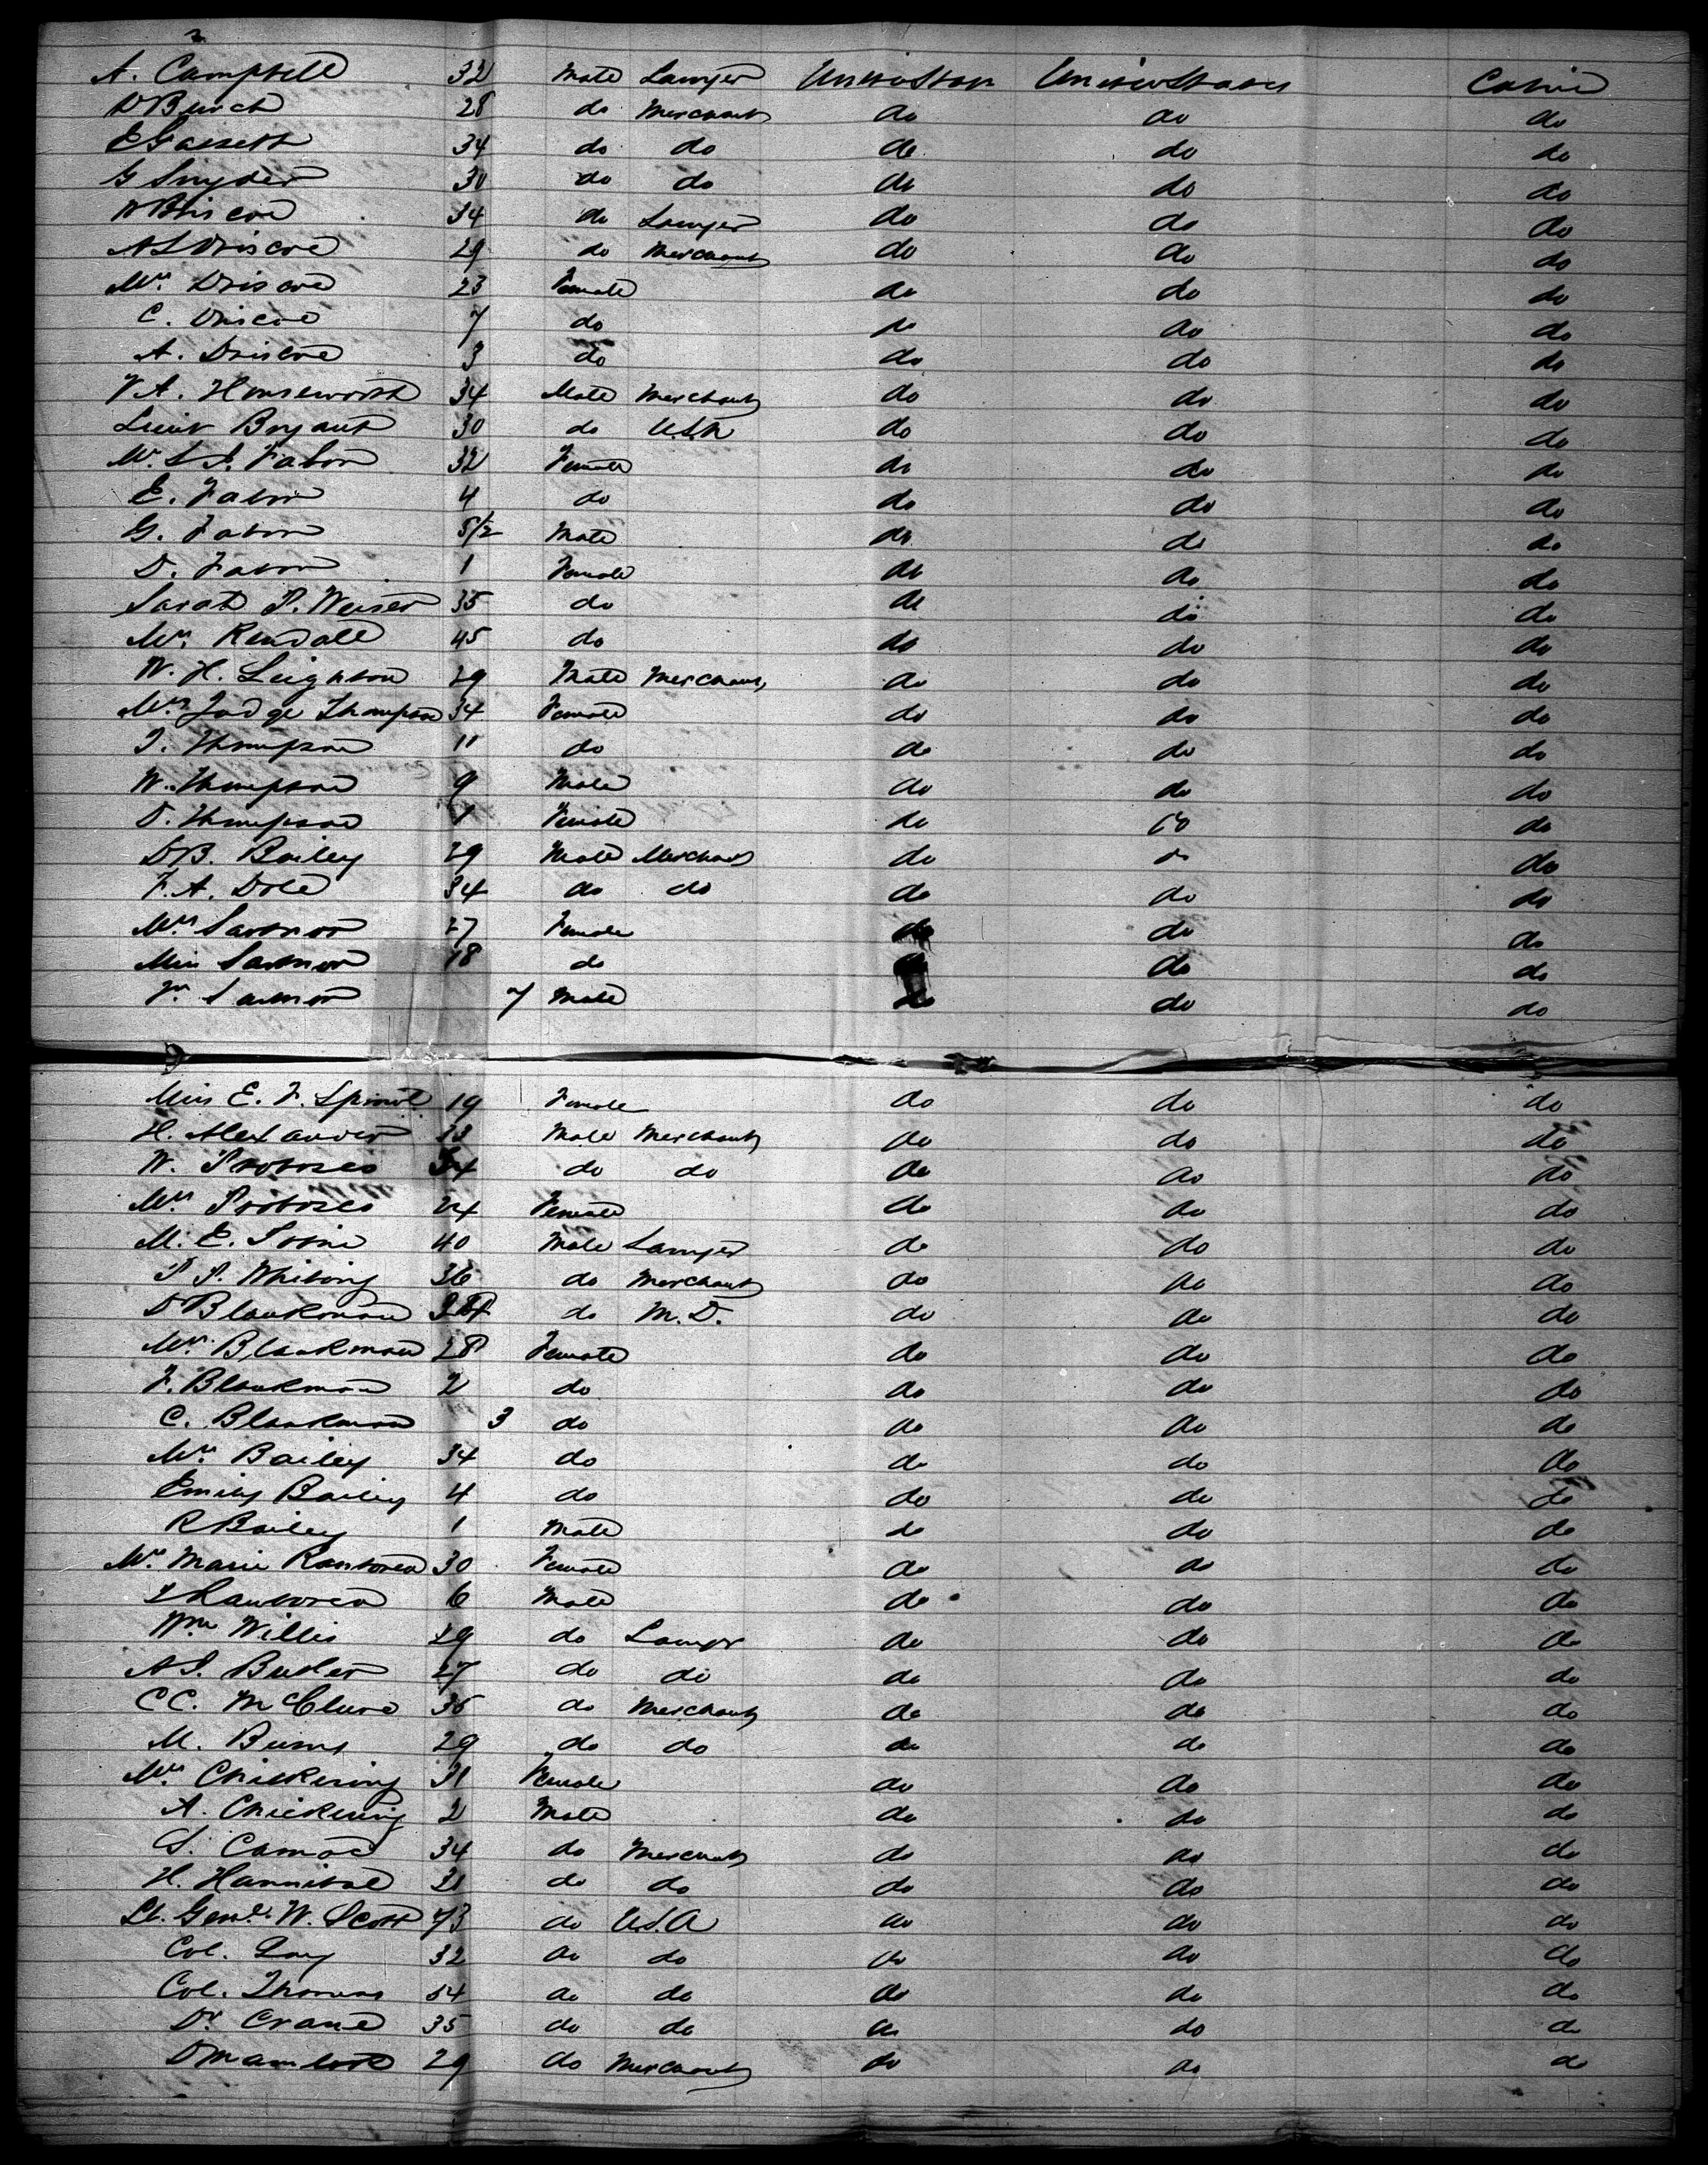 A. Campbell 32 Male Lawyer United States United States Cabin
D Burch 28 do Merchant do do do
E 34 do do do do do
G Snyder 30 do do do do do
Briscoe 34 do Lawyer do do do
A S Driscoe 29 do Merchant do do do
Mrs Driscoe 23 Female do do do
C. Driscoe 7 do do do do
A. Driscoe 3 do do do do
F A. Houseworth 34 Male Merchant do do do
Lieut Bryant 30 do U.S.N do do do
Mrs S. Fabon 32 Female do do do
E. Fabon 4 do do do do
G. Fabon 5 1/2 Male do do do
D. Fabon 1 Female do do do
Sarah P. Weiser 35 do do do do
Mrs Kendall 45 do do do do
W. H. Leighton 29 Male Merchant do do do
Mrs Judge Thompson 34 Female do do do
J. Thompson 11 do do do do
W. Thompson 9 Male do do do
D. Thompson 1 Female do do do
D B. Bailey 29 Male Merchant do do do
F. A. Dole 34 do do do do do
Mrs 27 Female do do do
Miss 18 do do do
7 Male do do do
Miss E. F. 19 Female do do do
H. Alexander 33 Male Merchant do do do
W. 34 do do do do do
Mrs 24 Female do do do
M. E. 40 Male Lawyer do do do
P P. Whiting 36 do Merchant do do do
D Blackman do M.D. do do do
Mrs Blackman 28 Female do do do
F. Blackman 2 do do do do
C. Blackman 3 do do do do
Mrs Bailey 34 do do do do
Emily Bailey 4 do do do do
R Bailey 1 Male do do do
Mrs Marie 30 Female do do do
6 Male do do do
Wm Willis 29 do Lawyer do do do
A S. Butler 27 do do do do do
C C. McClure 36 do Merchant do do do
M. Burns 29 do do do do do
Mrs Chickering 31 Female do do do
A. Chickering 2 Male do do do
S. Camac 34 do Merchant do do do
H. Hannibal 21 do do do do do
Lt. Genl. W. Scott 73 do U.S.A do do do
Col. Lay 32 do do do do do
Col. Thomas 54 do do do do do
Dr Crane 35 do do do do do
29 do Merchant do do do